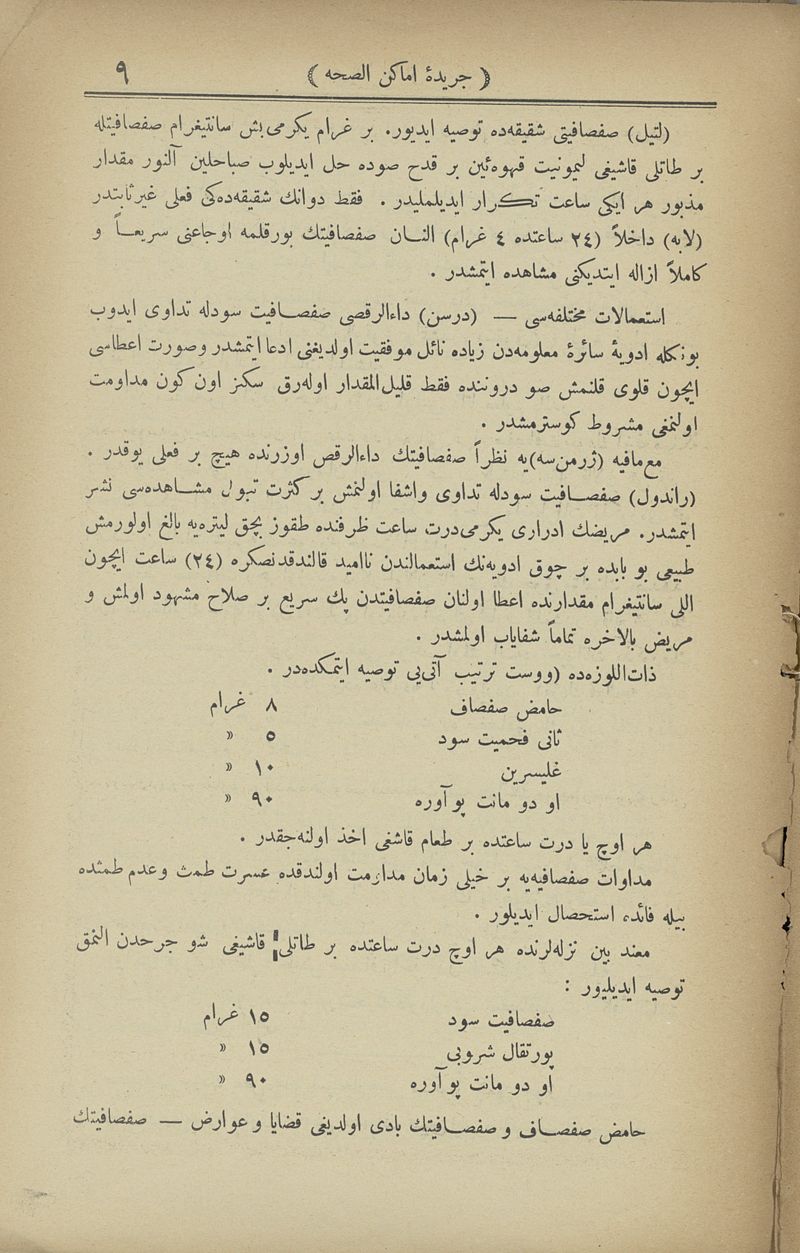 ( جريدهٔ اماكن الصحه ) ٩
(لتيل) صفصافيتى شقيقه‌ده توصيه ايديور. بر غرام يكرمى‌بش سانتيغرام صفصافيتله
بر طاتلى قاشيغى ليمونيت قهوه‌ئين بر قدح صوده حل ايديلوب صباحلين آلنور مقدار
مذبور هر ايكى ساعت تكرار ايديلمليدر . فقط دوانك شقيقه‌ده‌كى فعلى غيرثابتدر
(لابه) داخلاً (٢٤ ساعتده ٤ غرام) النان صفصافيتك بورقلمه اوجاعنى سريعاً و
كاملاً ازاله ايتديكنى مشاهده ايتمشدر .
استعمالات مختلفه‌سى — (درسن) داءالرقصى صفصافيت سودله تداوى ايدوب
بونكله ادويهٔ سائرهٔ معلومه‌دن زياده نائل موفقيت اولديغنى ادعا ايتمشدر وصورت اعطاسى
ايچون قلوى قلنمش صو دروننده فقط قليل‌المقدار اوله‌رق سكز اون‌كون مداومت
اولنمغى مشروط كوسترمشدر .
مع‌مافيه (ژرمن‌سه)يه نظراً صفصافيتك داءالرقص اوزرنده هيچ بر فعلى يوقدر .
(راندول) صفصافيت سودله تداوى واشفا اولنمش بر كثرت تبول مشاهده‌سى نشر
ايتمشدر. مريضك ادرارى يكرمى‌درت ساعت ظرفنده طقوز بچق ليتره‌يه بالغ اولورمش
طبيعى بو بابده بر چوق ادويه‌نك استعمالندن نااميد قالندقدنصكره (٢٤) ساعت ايچون
اللى سانتيغرام مقدارنده اعطا اولنان صفصافيتدن پك سريع بر صلاح مشهود اولمش و
مريض بالاخره تماماً شفاياب اولمشدر .
ذات‌اللوزه‌ده (ووست ترتيب آتى‌يى توصيه ايتمكده‌در .
حامض صفصاف ٨ غرام
ثانى فحميت سود ٥ «
غليسرين ١٠ «
او دو مانت پوآوره ٩٠ «
هر اوچ يا درت ساعتده بر طعام قاشغى اخذ اولنه‌جقدر .
مداوات صفصافيه‌يه بر خيلى زمان مداومت اولندقده عسرت طمث وعدم طمثده
بيله فائده استحصال ايديلور .
معند بين نزله‌لرنده هر اوچ درت ساعتده بر طاتلى قاشيغى شو جرحدن النمق
توصيه ايديليور :
صفصافيت سود ١٥ غرام
پورتقال شروبى ١٥ «
او دو مانت پوآوره ٩٠ «
حامض صفصاف و صفصافيتك بادى اولديغى قضايا و عوارض — صفصافيتك